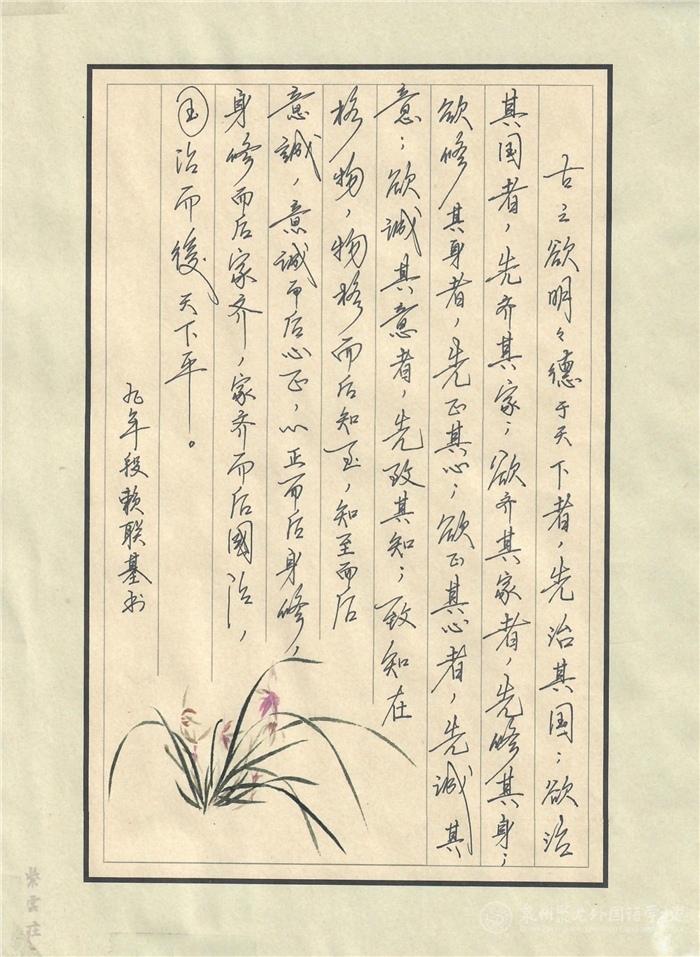 古之欲明々德于天下者，先治其国；欲治
其国者，先齐其家；欲齐其家者，先修其身；
欲修其身者，先正其心；欲正其心者，先诚其
意；欲诚其意者，先致其知；致知在
格物，物格而后知至，知至而后
意誠，意诚而后心正，心正而后身修，
身修而后家齐，家齐而后國治，
国治而後天下平。
九年段赖联基书